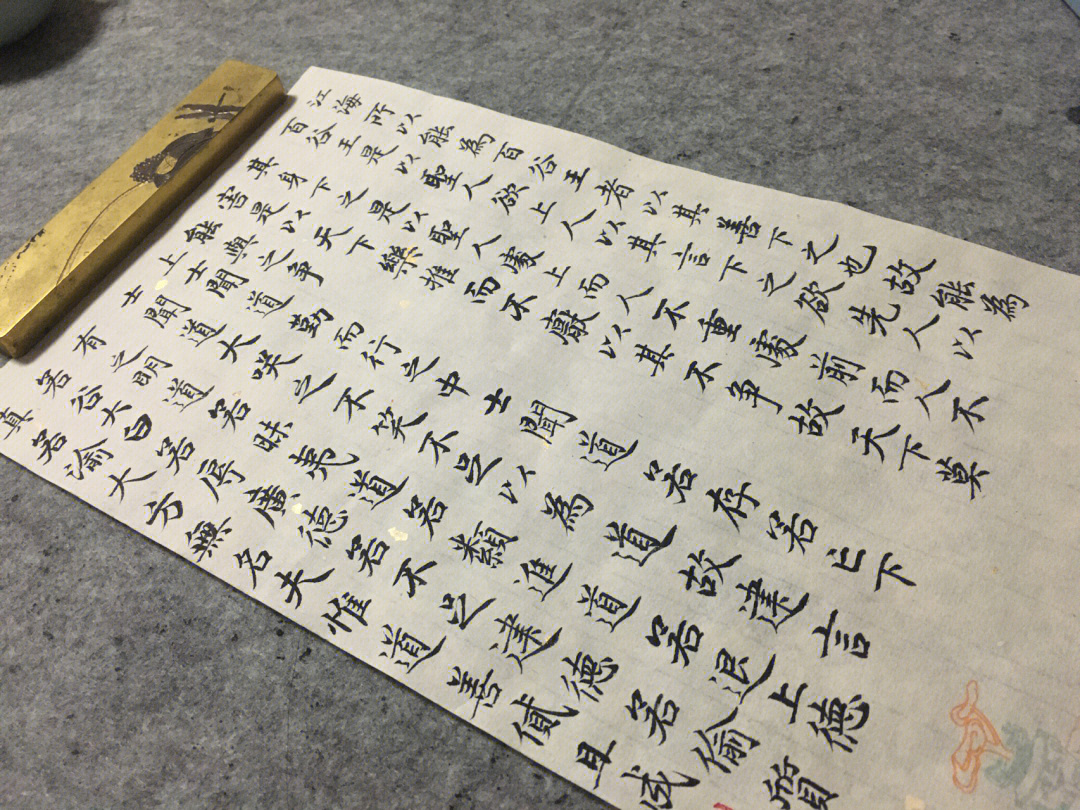 江海所以能為百谷王者以其善下之也故能為
百谷王是以聖人欲上人以其言下之欲先人以
其身下之是以聖人處上而人不重處前而人不
害是以天下樂推而不厭以其不争故天下莫
能與之争
上士聞道勤而行之中士聞道若存若亡下
士聞道大咲之不笑不足以為道故建言
有之明道若昧夷道若類進道若退上德
若谷大白若辱廣德若不足建德若偷質
真若渝大方無名夫惟道善貸且成